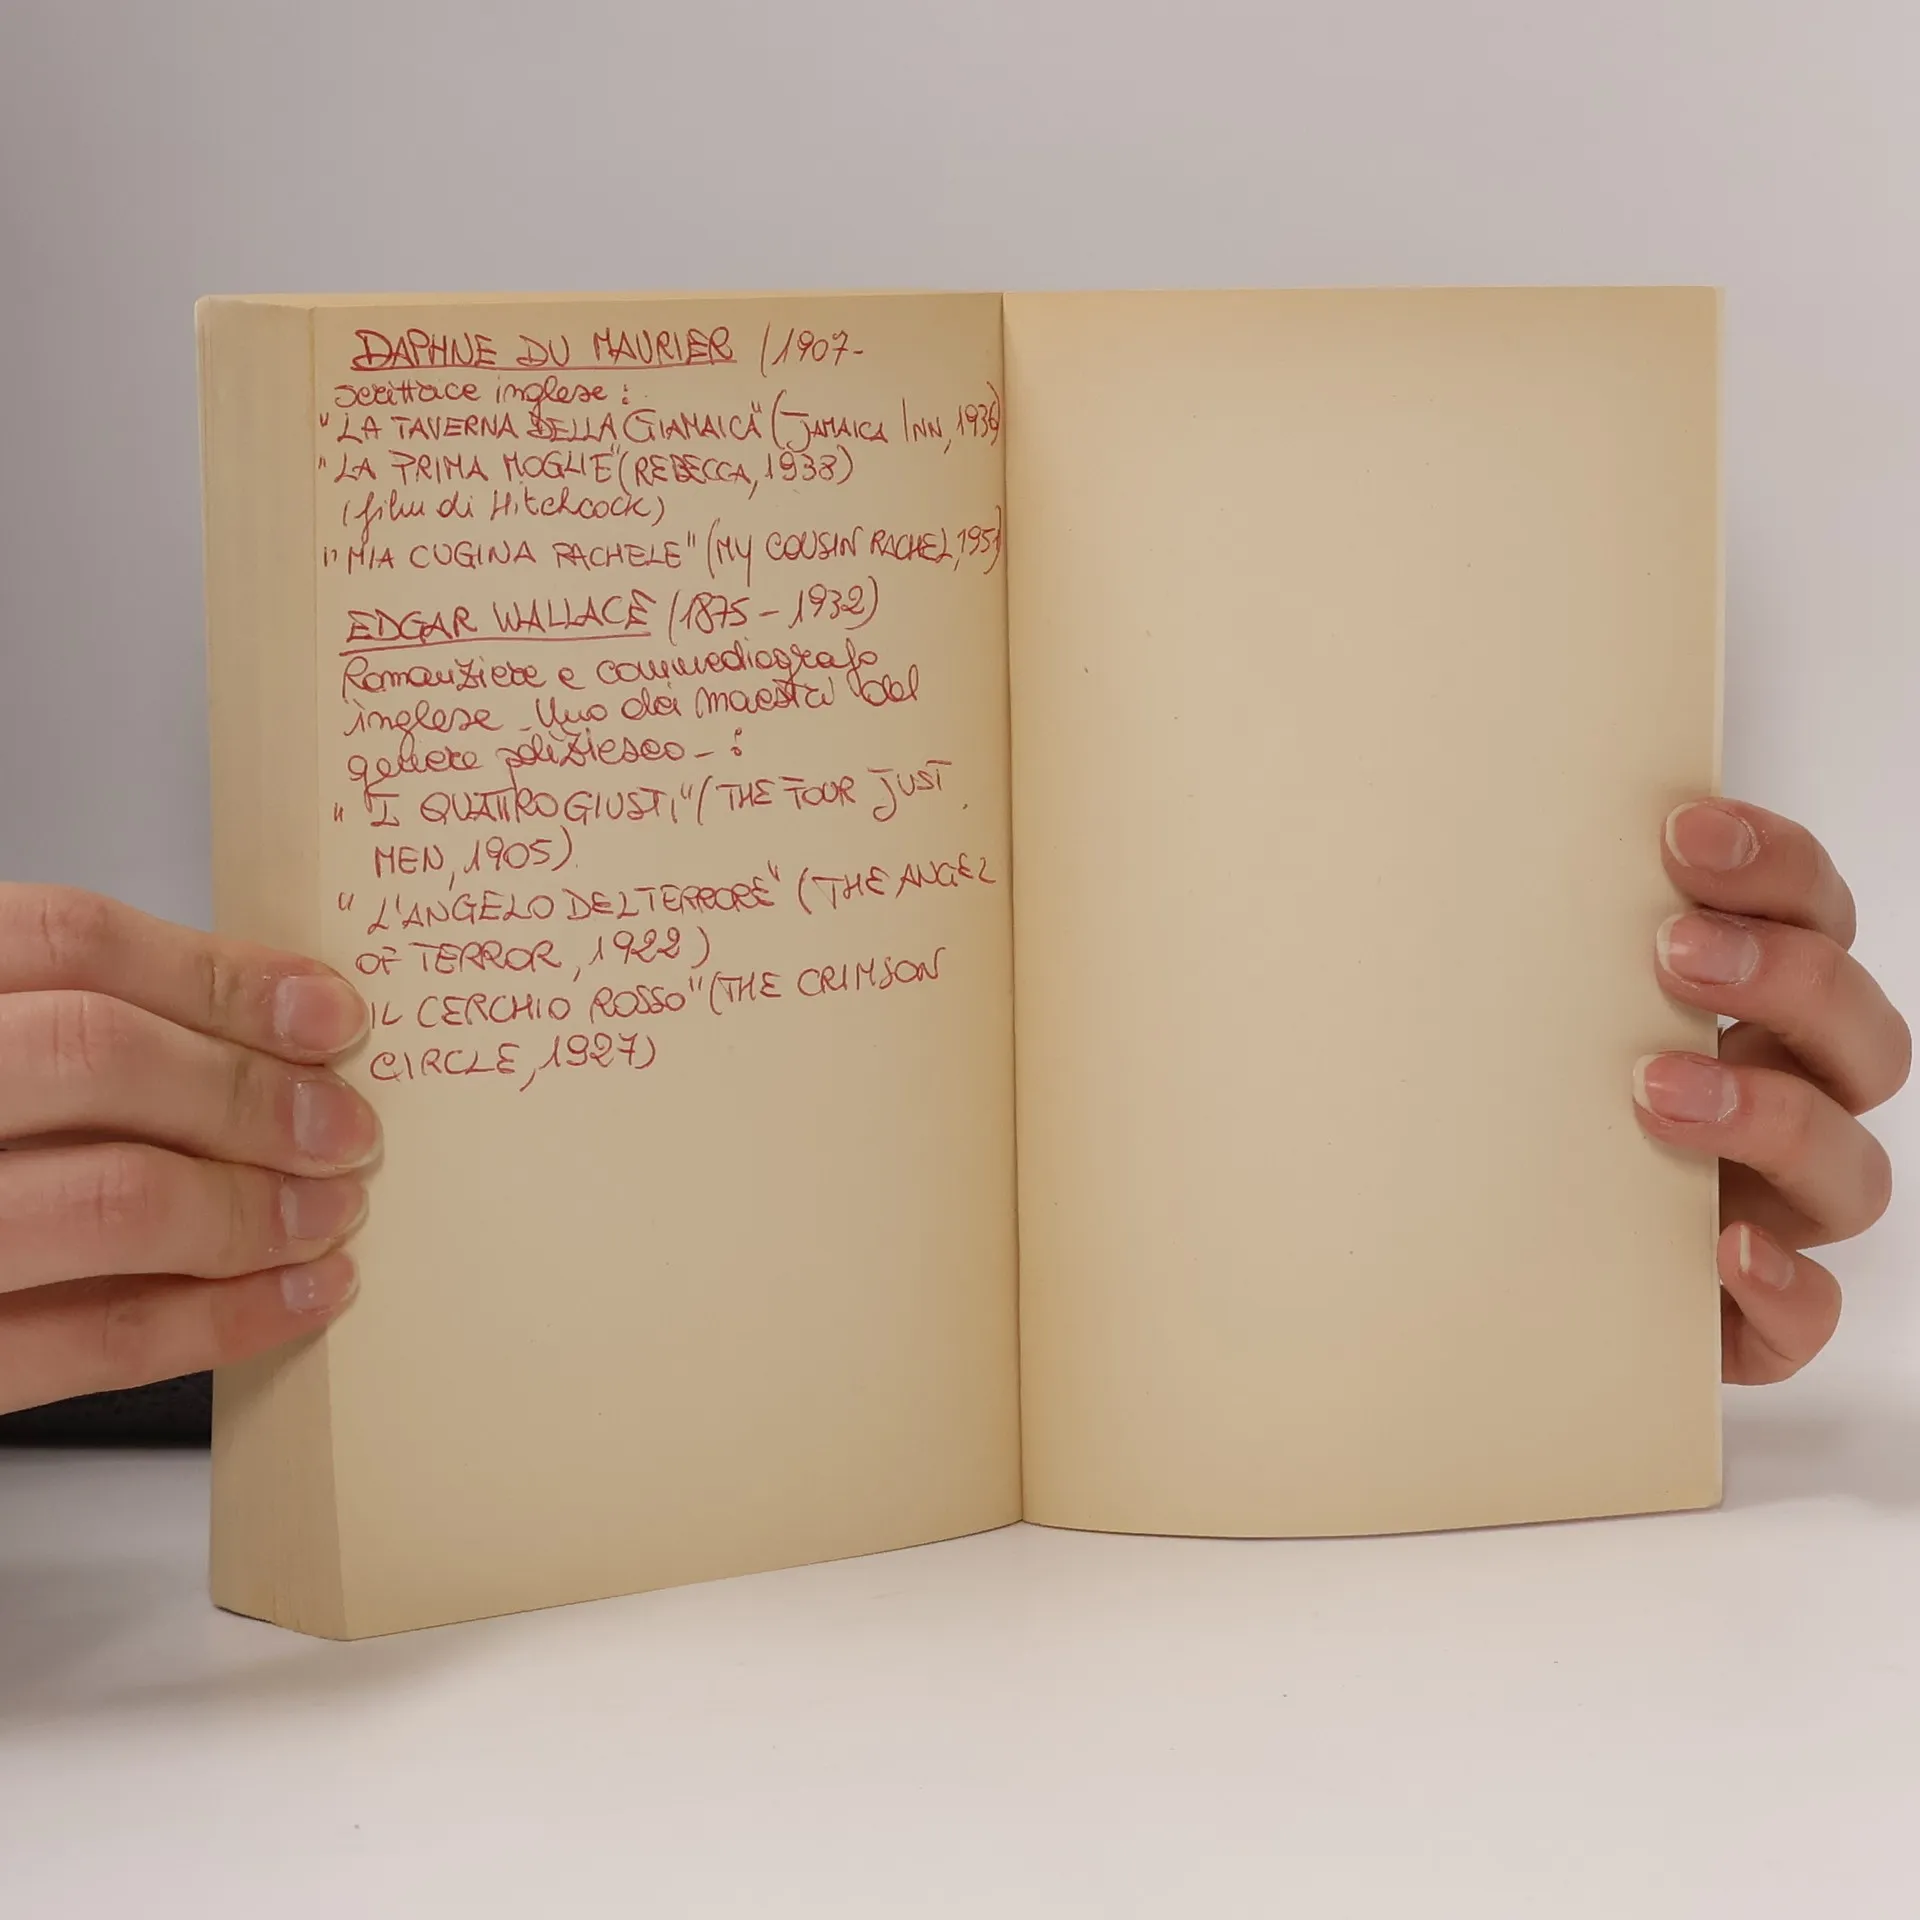 DAPHNE DU MAURIER (1907-
scrittrice inglese:
"LA TAVERNA DELLA GIAMAICA" (JAMAICA INN, 1936)
"LA PRIMA MOGLIE" (REBECCA, 1938)
(film di Hitchcock)
"MIA CUGINA RACHELE" (MY COUSIN RACHEL, 1951)
EDGAR WALLACE (1875-1932)
Romanziere e commediografo
inglese - Uno dei maestri del
genere poliziesco - :
"I QUATTRO GIUSTI" (THE FOUR JUST
MEN, 1905).
"L'ANGELO DEL TERRORE" (THE ANGEL
OF TERROR, 1922)
IL CERCHIO ROSSO" (THE CRIMSON
CIRCLE, 1927)